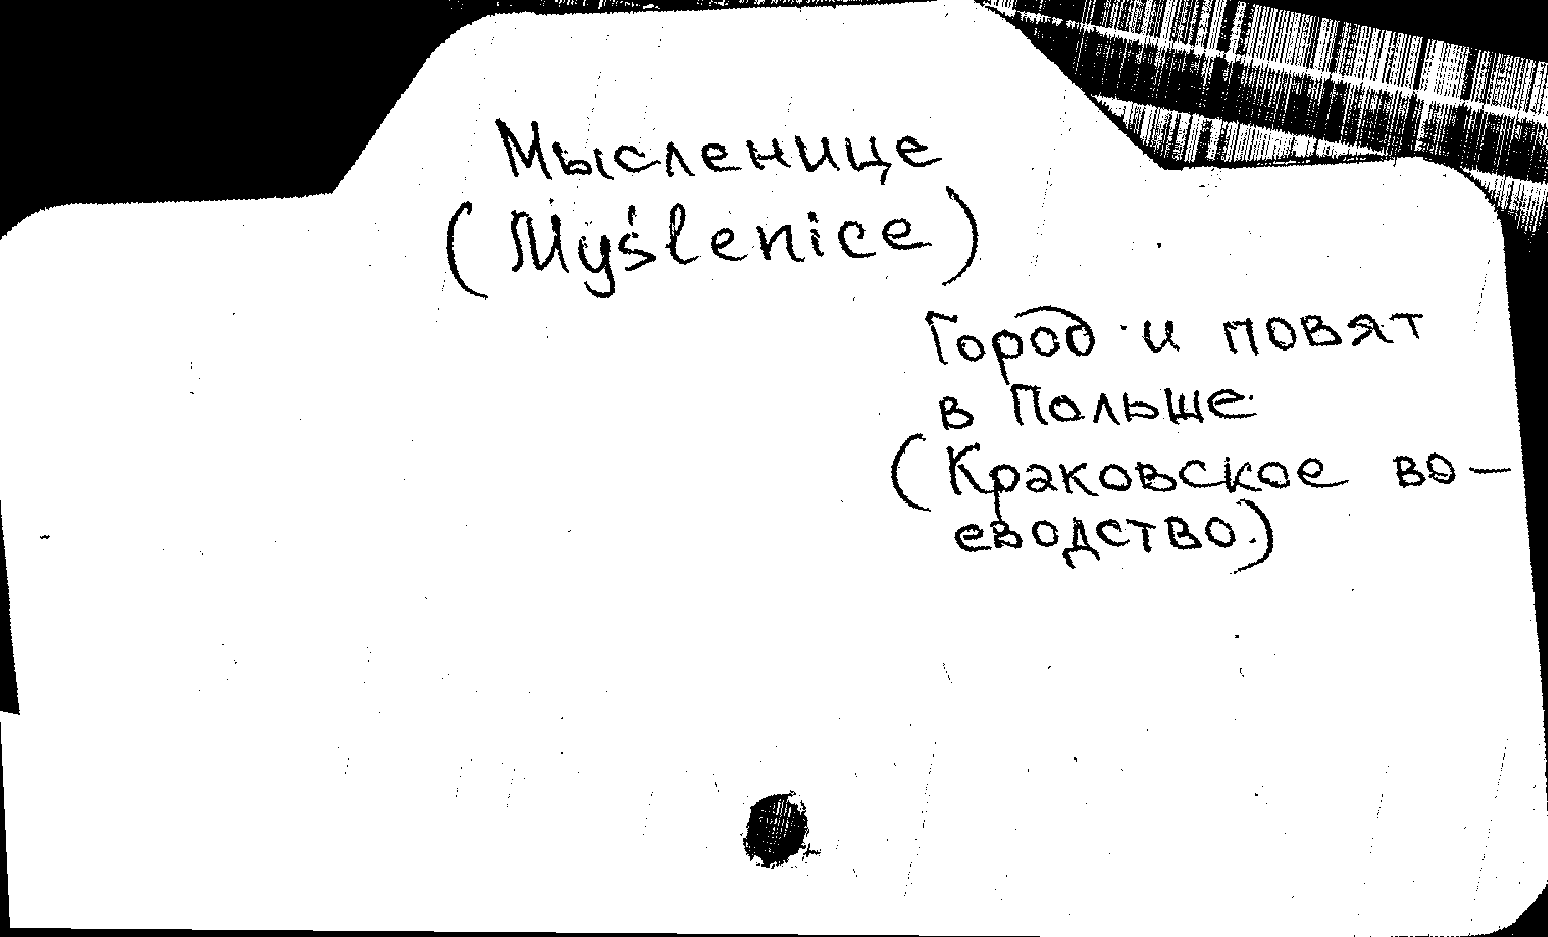 Мысленице
(Myślenice)
Город и повят
в Польше
(Краковское во-
еводство.)